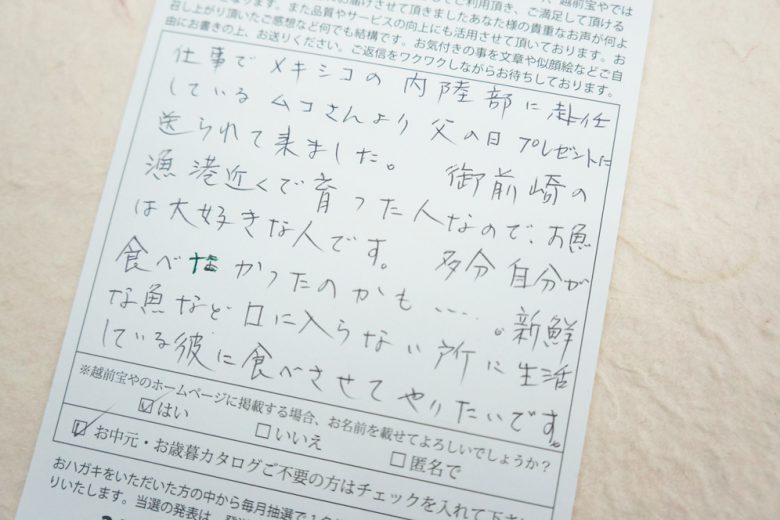 お届けさせて頂きましたあなた様の貴重なお声が何よ
召し上がり頂いたご感想など何でも結構です。お気付きの事を文章や似顔絵などご自
由にお書きの上、お送りください。ご返信をワクワクしながらお待ちしております。
仕事でメキシコの内陸部に赴任
しているムコさんより父の日プレゼントに
送られて来ました。御前崎の
漁港近くで育った人なので、お魚
は大好きな人です。多分自分が
食べたかったのかも……。新鮮
な魚など口に入らない所に生活
している彼に食べさせてやりたいです。
※越前宝やのホームページに掲載する場合、お名前を載せてよろしいでしょうか？
☑はい □いいえ □匿名で
☑お中元・お歳暮カタログご不要の方はチェックを入れて下さ
おハガキをいただいた方の中から毎月抽選で
りいたします。当選の発表は、